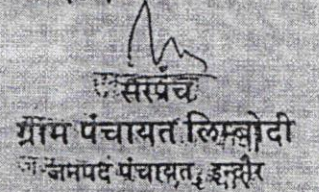 सरपंच
ग्राम पंचायत लिम्बोदी
जनपद पंचायत, इन्दौर